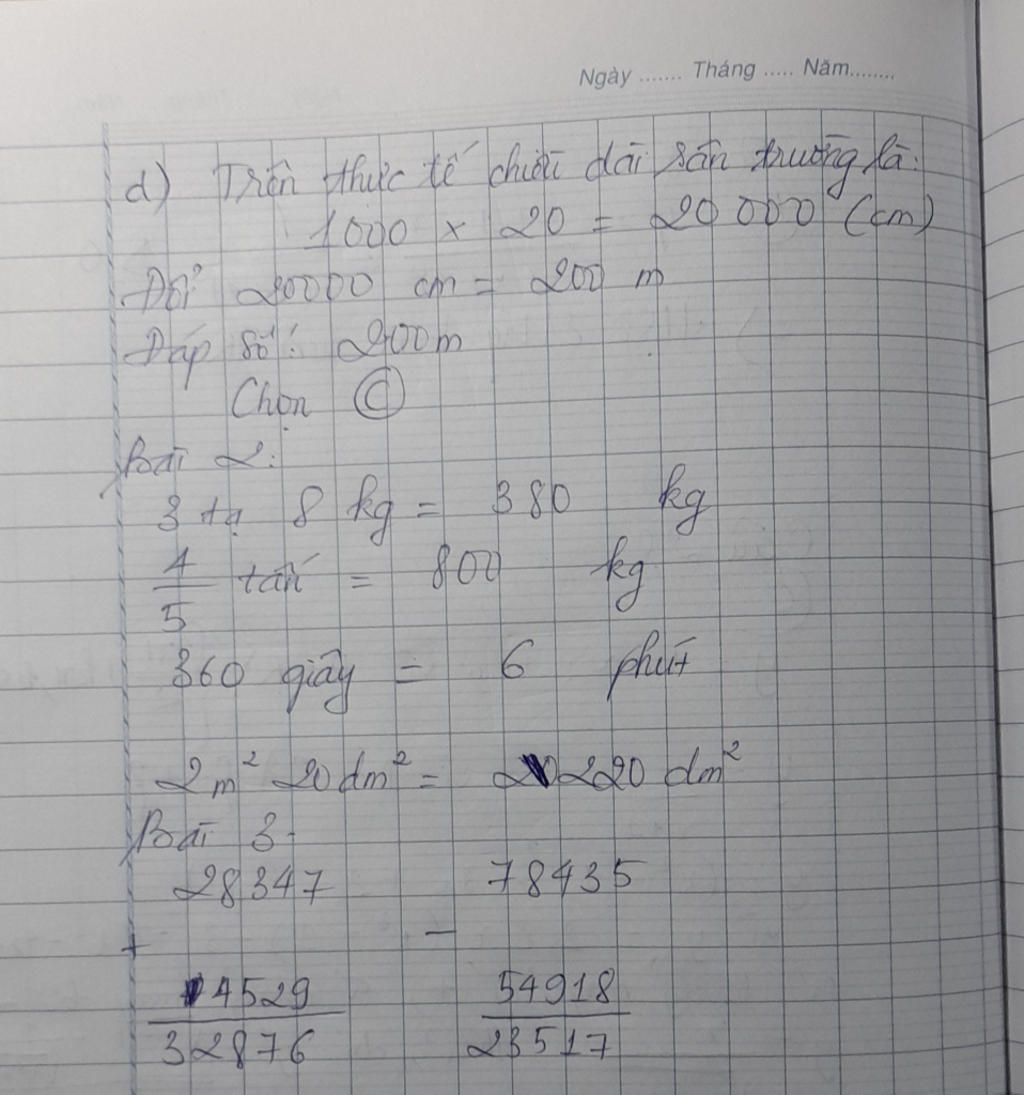 Ngày ....... Tháng ..... Năm........
d) Trên thực tế chiều dài sân trường là:
1000 x 20 = 20 000 (cm)
Đổi 20000 cm = 200 m
Đáp số: 200m
Chọn C
Bài 2:
3 tạ 8 kg = 380 kg
4/5 tấn = 800 kg
360 giây = 6 phút
2m² 20dm² = 220 dm²
Bài 3:
28347 78435
+ −
4529 54918
32876 23517